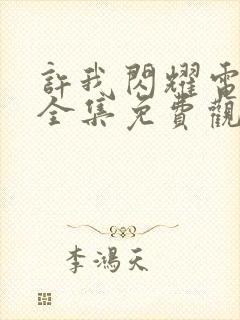 許我閃耀電
全集免費觀
李鴻天